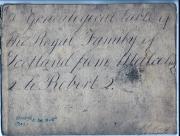 A Genealogical Table of
the Royal Family of
Scotland from Malcolm
2 to Robert 2.